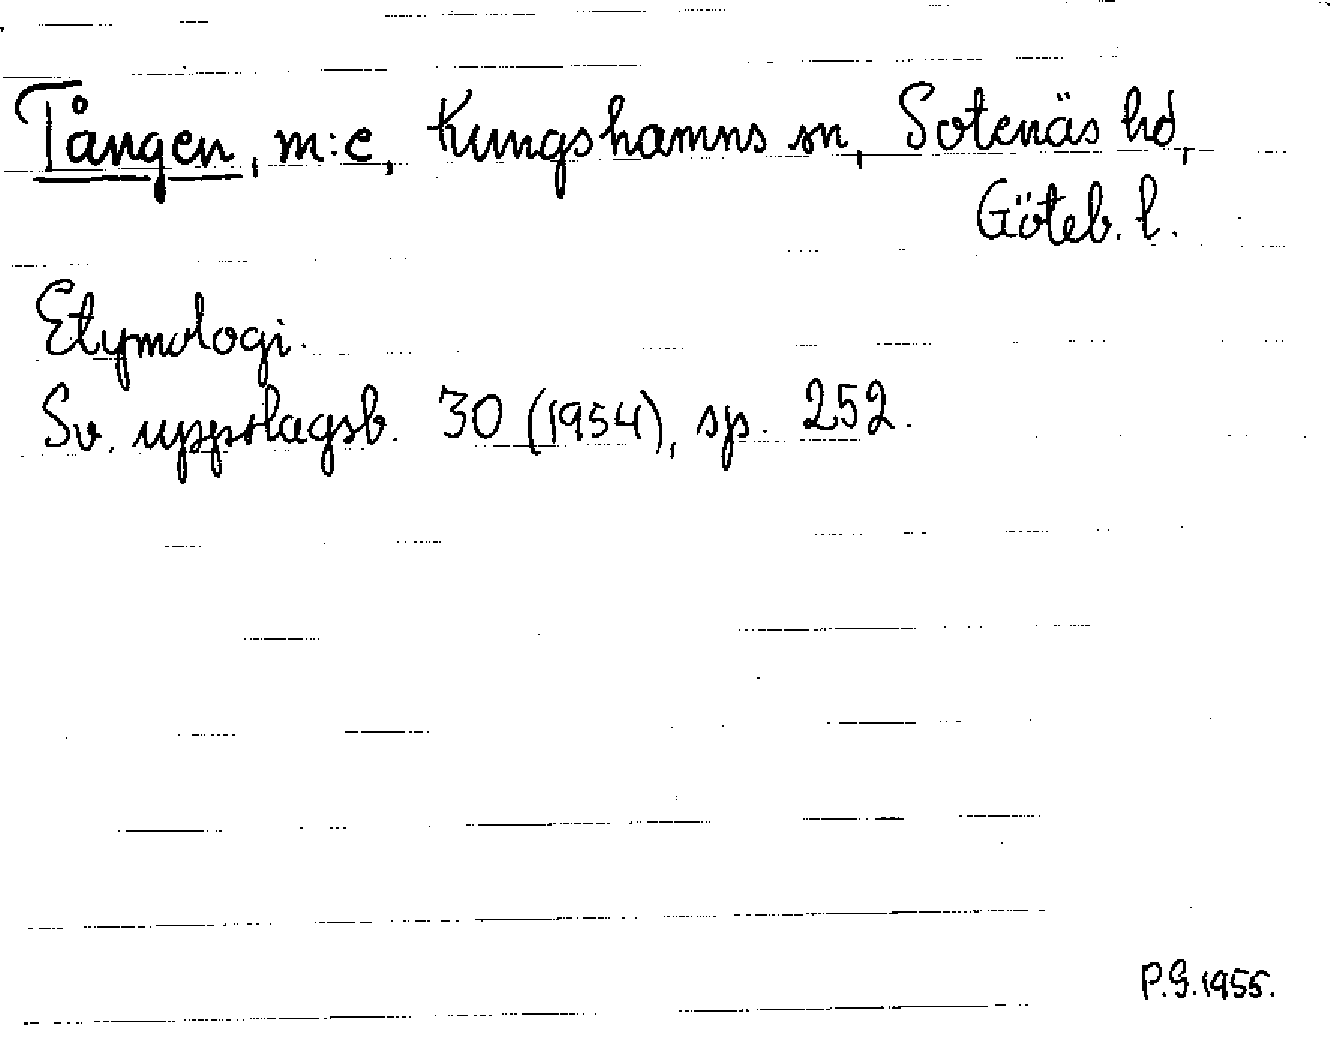 Tången, m:e, Kungshamns sn, Sotenäs hd,
Göteb. l.
Etymologi.
Sv. uppslagsb. 30 (1954), sp. 252.
P.G. 1955.